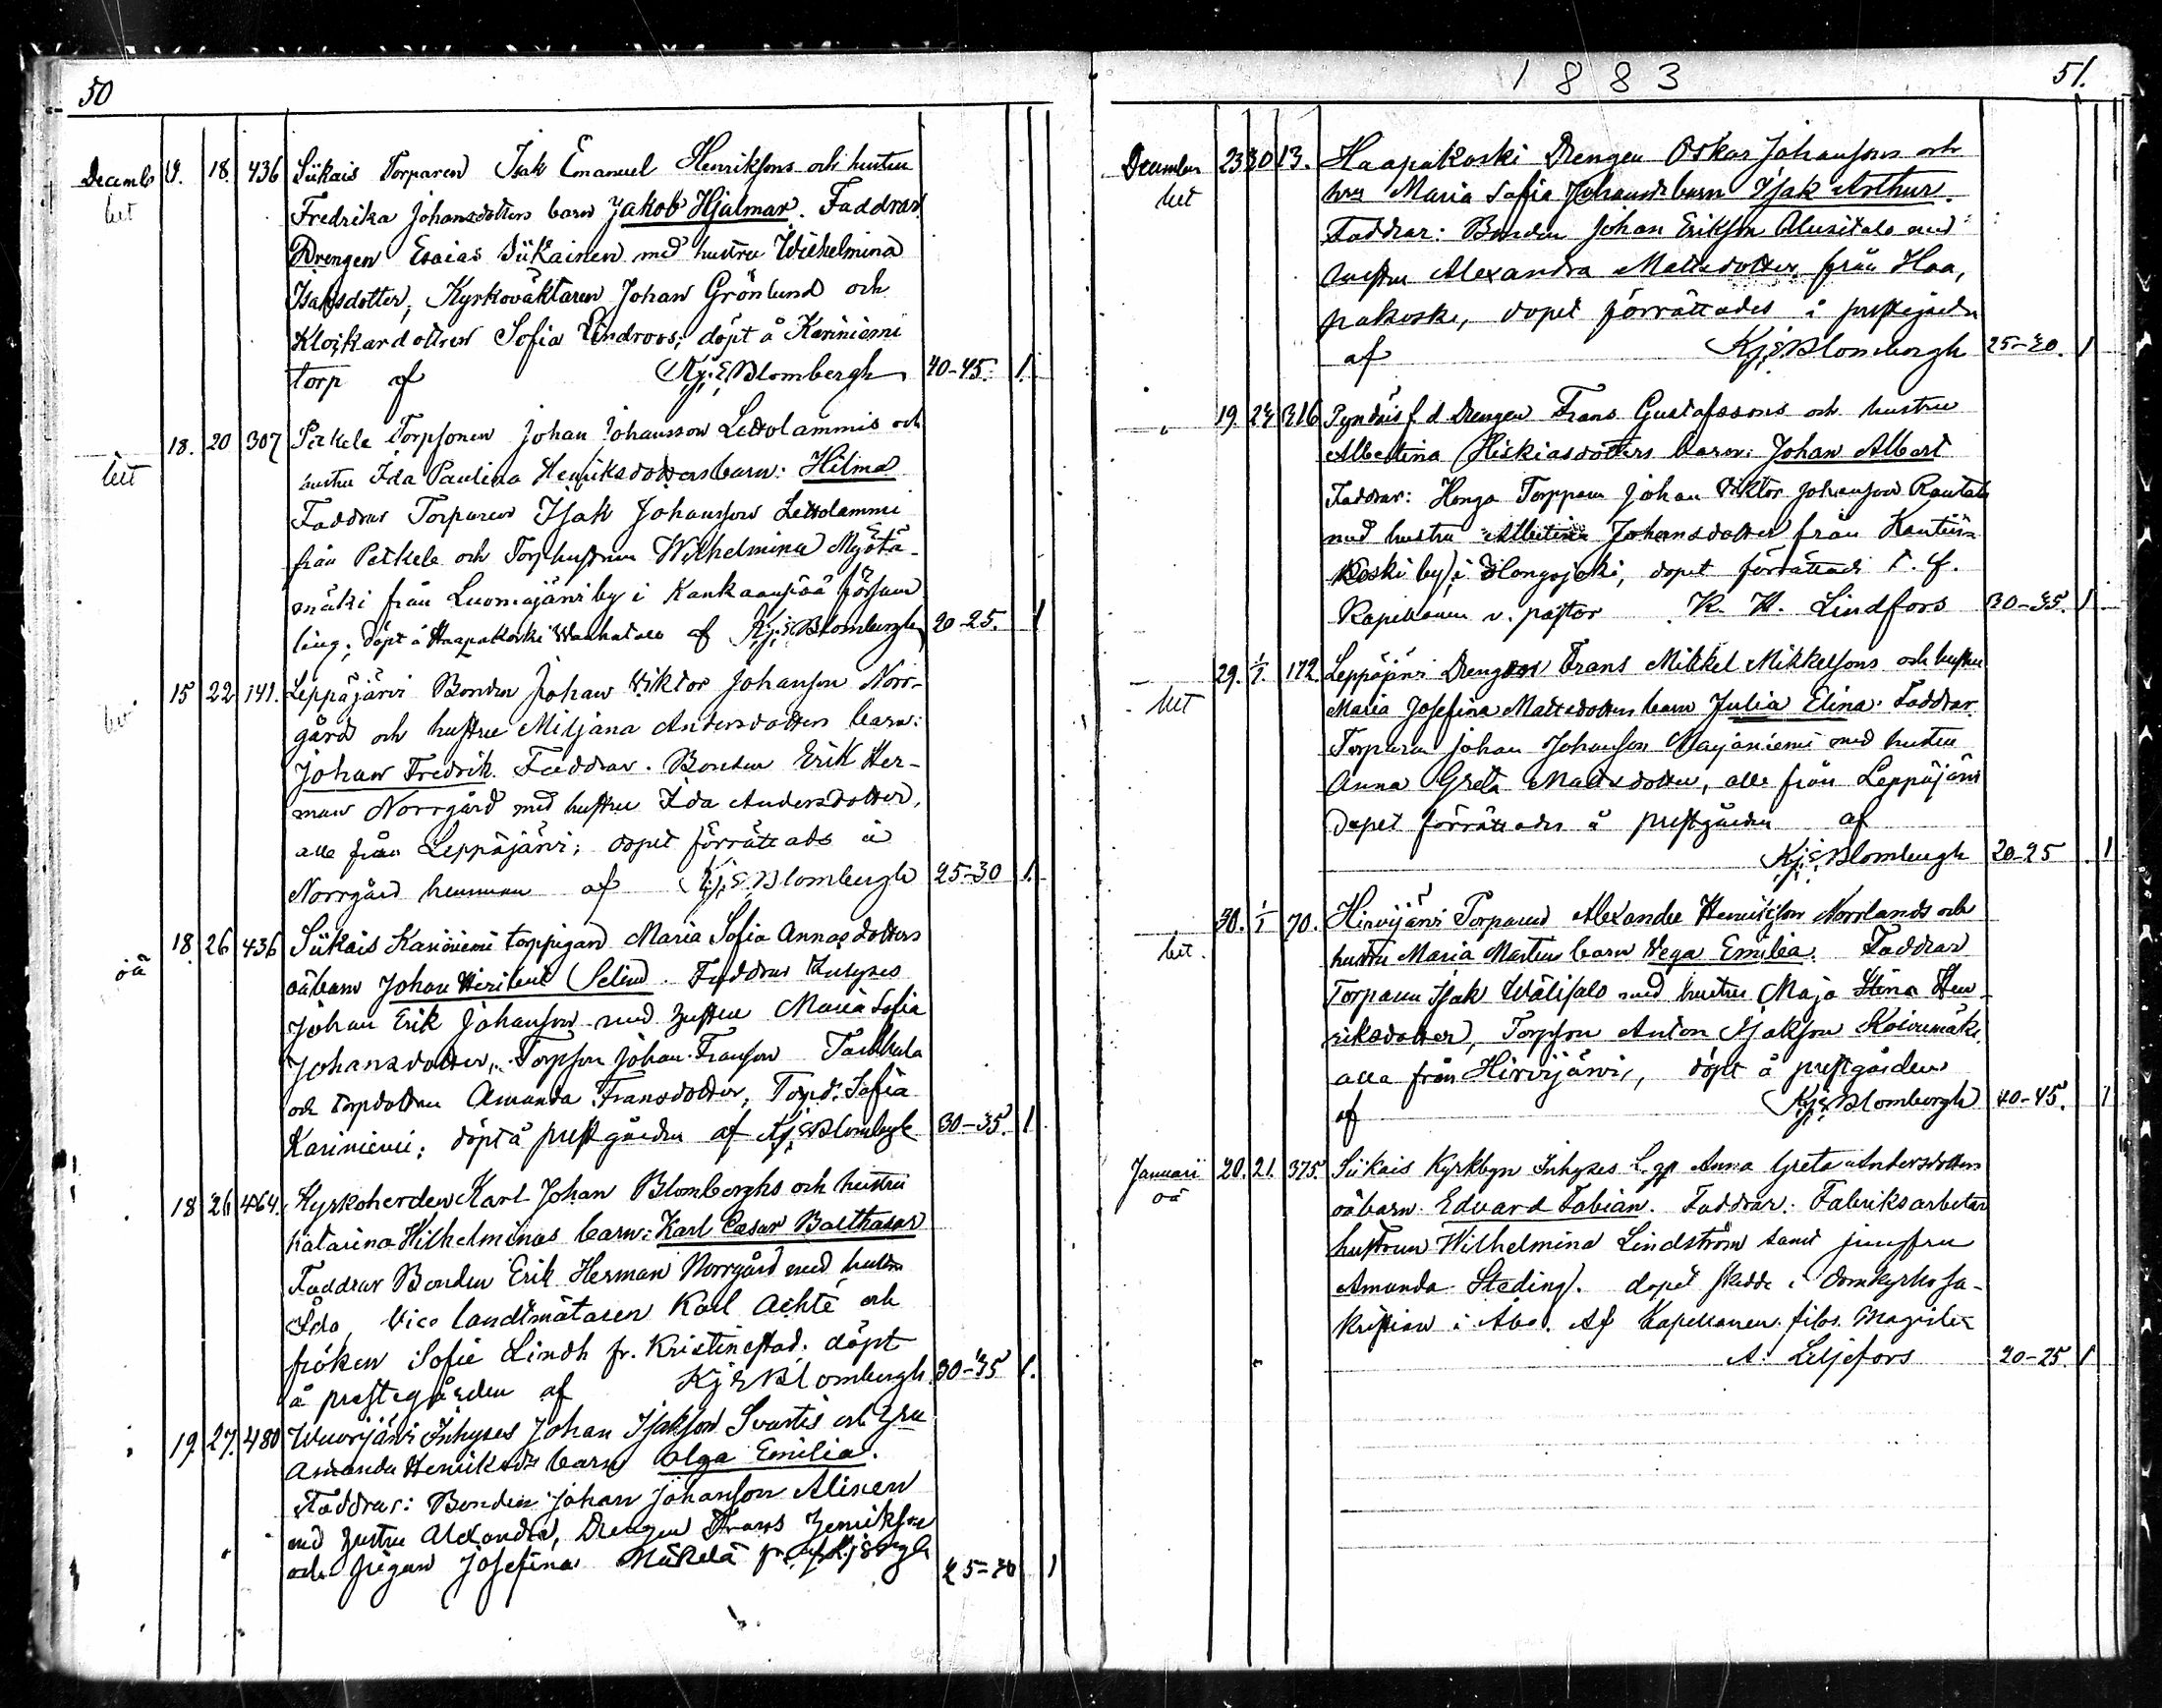 50
Decemb. 9. 18. 436 Siikais Torparen Isak Emanuel Henriksons och hustru
Fredrika Johansdotters barn Jakob Hjalmar. Faddrar
Drengen Esaias Siikainen med hustru Wilhelmina
Isaksdotter, Kyrkovaktaren Johan Grönlund och
Klockardottren Sofia Lindroos; döpt å Kariniemi
torp af Kj: E Blombergh 40-45. 1.
18. 20 307 Petkele Torpsonen Johan Johansson Lettolammis och
hustru Ida Paulina Henriksdotters barn: Hilma
Faddrar Torparen Isak Johansson Lettolammi
från Petkele och Torphustrun Wilhelmina Myötä-
mäki från Luomajärvi by i Kankaanpää försam
ling; döpt å Haapakoski Wanhatalo af Kj: E Blombergh 20-25. 1
15 22 141. Leppäjärvi Bonden Johan Viktor Johanson Norr-
gård och hustru Miljana Andersdotters barn:
Johan Fredrik. Faddrar. Bonden Erik Her-
man Norrgård med hustru Ida Andersdotter,
alla från Leppäjärvi; dopet förrättads å
Norrgård hemman af Kj: E Blombergh 25-30 1.
oä 18. 26 436 Siikais Kariniemi torppigan Maria Sofia Annasdotters
oäbarn Johan Selim. Faddrar Inhyses
Johan Erik Johanson med hustru Maria Sofia
Johansdotter, Torpson Johan Franson
och torpdottren Amanda Fransdotter, Torpd. Sofia
Kariniemi; döpt å prestgården af Kj: E Blombergh 30-35. 1
18 26 464. Kyrkoherden Karl Johan Blomberghs och hustru
Katarina Wilhelminas barn: Karl Cæsar Balthasar
Faddrar Bonden Erik Herman Norrgård med hustru
Ida, Vice landtmätaren Karl Achté och
fröken Sofie Lindh fr. Kristinestad. döpt
å prestegården af Kj E Blombergh. 30-35 1.
19. 27. 480 Wuorijärvi Inhyses Johan Isakson Svartis och hru
Amanda Henriksdrs barn Olga Emilia.
Faddrar: Bonden Johan Johanson Alinen
med hustru Alexandra, Drengen Frans Henrikson
och pigan Josefina Mäkelä 25-30 1
1883 51.
December 23 30 13. Haapakoski Drengen Oskar Johansons och
hru Maria Sofia Johansdr barn Isak Arthur.
Faddrar: Bonden Johan Erikson Alusitalo med
hustru Alexandra Mattsdotter från Haa,
pakoski, dopet förrättades i prestgården
af Kj: E Blombergh 25-30. 1
19. 316 f. d Drengen Frans Gustafssons och hustru
Albertina Hiskiasdotters barn: Johan Albert
Faddrar: Honga Torparen Johan Viktor Johanson
med hustru Albertina Johansdotter från
koski by i Hongojoki, dopet förrättads t. f.
Kapellanen v. pastor K. H. Lindfors 30-35. 1
29. 1/1. 172. Leppäjärvi Drengen Frans Mikkel Mikkelsons och hustru
Maria Josefina Mattsdotters barn Julia Elina. Faddrar.
Torparen Johan Johanson Marjaniemi med hustru
Anna Greta Mattsdotter, alla från Leppäjärvi
dopet förrättades å prestgården af
Kj: E Blombergh 20-25 1
30. 1/1 70. Hirvijärvi Torparen Alexander Henrikson Norrlands och
hustru Maria barn Vega Emilia. Faddrar
Torparen Isak Wälisalo med hustru Maja Stina Hen-
riksdotter, Torpson Anton Isakson Koivumäki,
alla från Hirvijärvi, döpt å prestgården
af Kj: E Blombergh 40-45. 1
Januari 20. 21. 375. Siikais Kyrkbyn Inhyses Anna Greta Andersdotters
oä oäbarn Edvard Fabian. Faddrar: Fabriksarbetar
hustrun Wilhelmina Lindström samt jungfru
Amanda Steding. dopet skedde i domkyrko sa-
kristian i Åbo. Af Kapellanen filos. Magister
A. Liljefors 20-25. 1